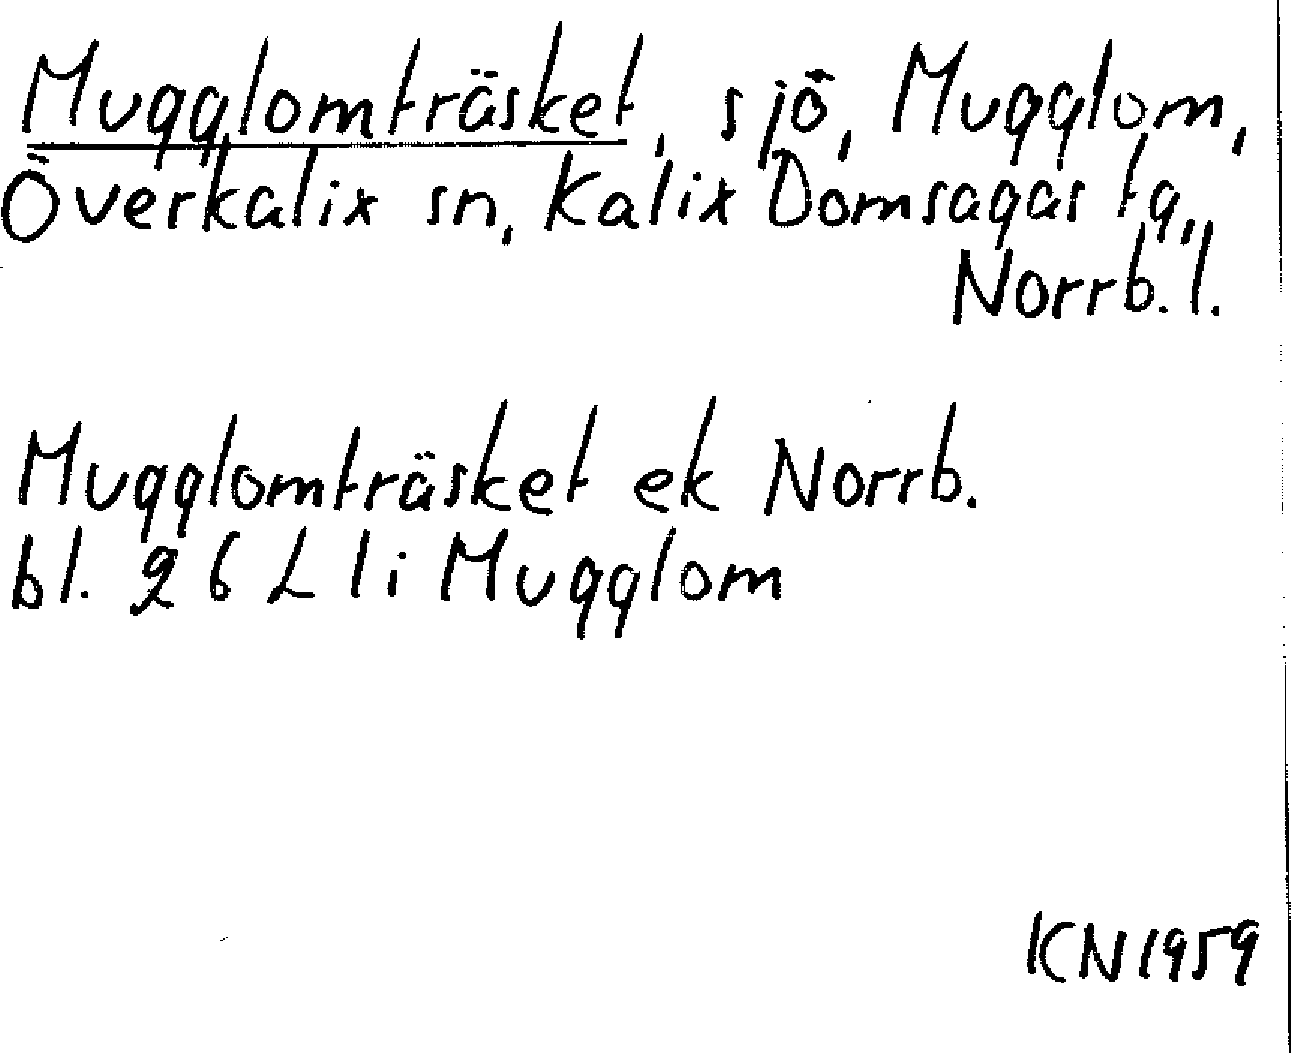 Mugglomträsket, sjö, Mugglom,
Överkalix sn, Kalix Domsagas tg,
Norrb. l.
Mugglomträsket ek Norrb.
bl. 26 L li Mugglom
KN 1959